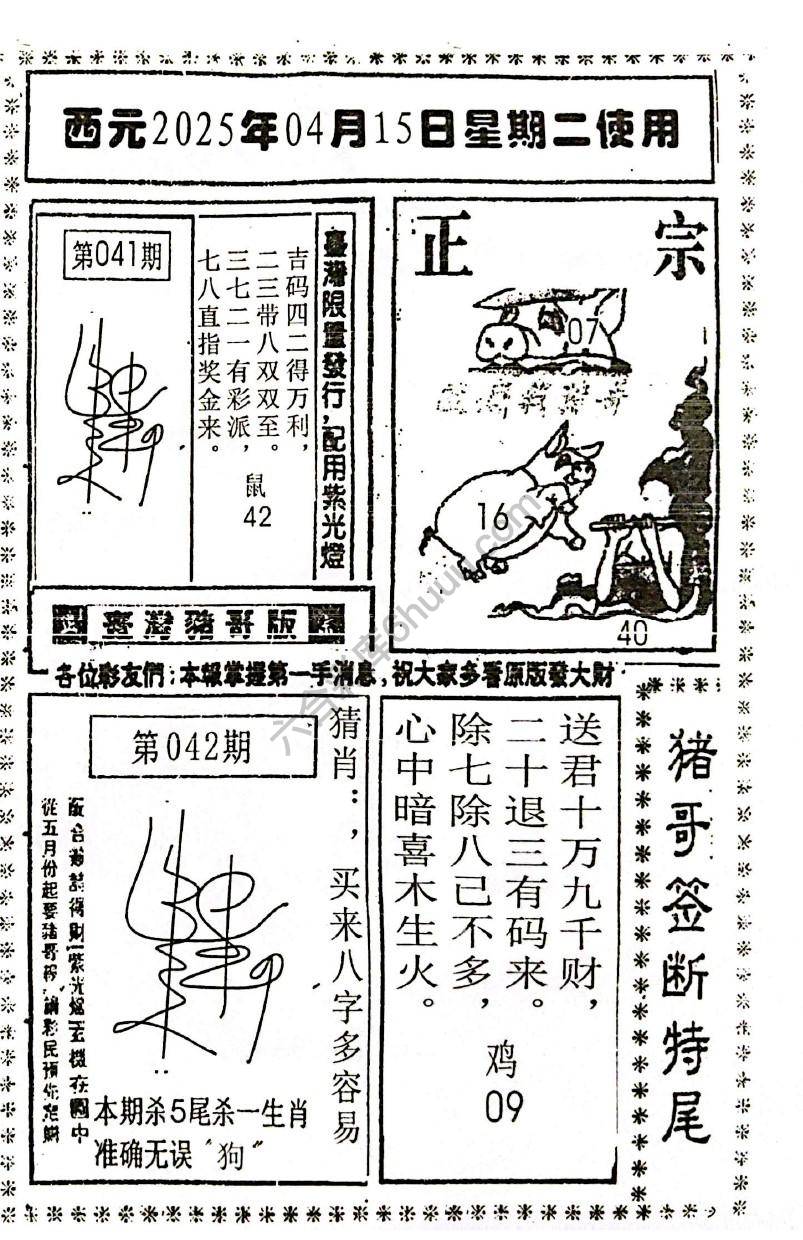 西元2025年04月15日星期二使用
第041期
臺灣限量發行，配用紫光燈
吉码四二得万利，
二三带八双双至。
三七二一有彩派，
七八直指奖金来。
鼠
42
正宗
07
16
40
臺灣豬哥版
各位彩友們：本報掌握第一手消息，祝大家多看原版發大財
第042期
猜肖：，买来八字多容易
從五月份起要豬哥報
本期杀5尾杀一生肖
准确无误“狗”
送君十万九千财，
二十退三有码来。
除七除八已不多，
心中暗喜木生火。
鸡
09
猪哥签断特尾
六合彩库6huuu.com